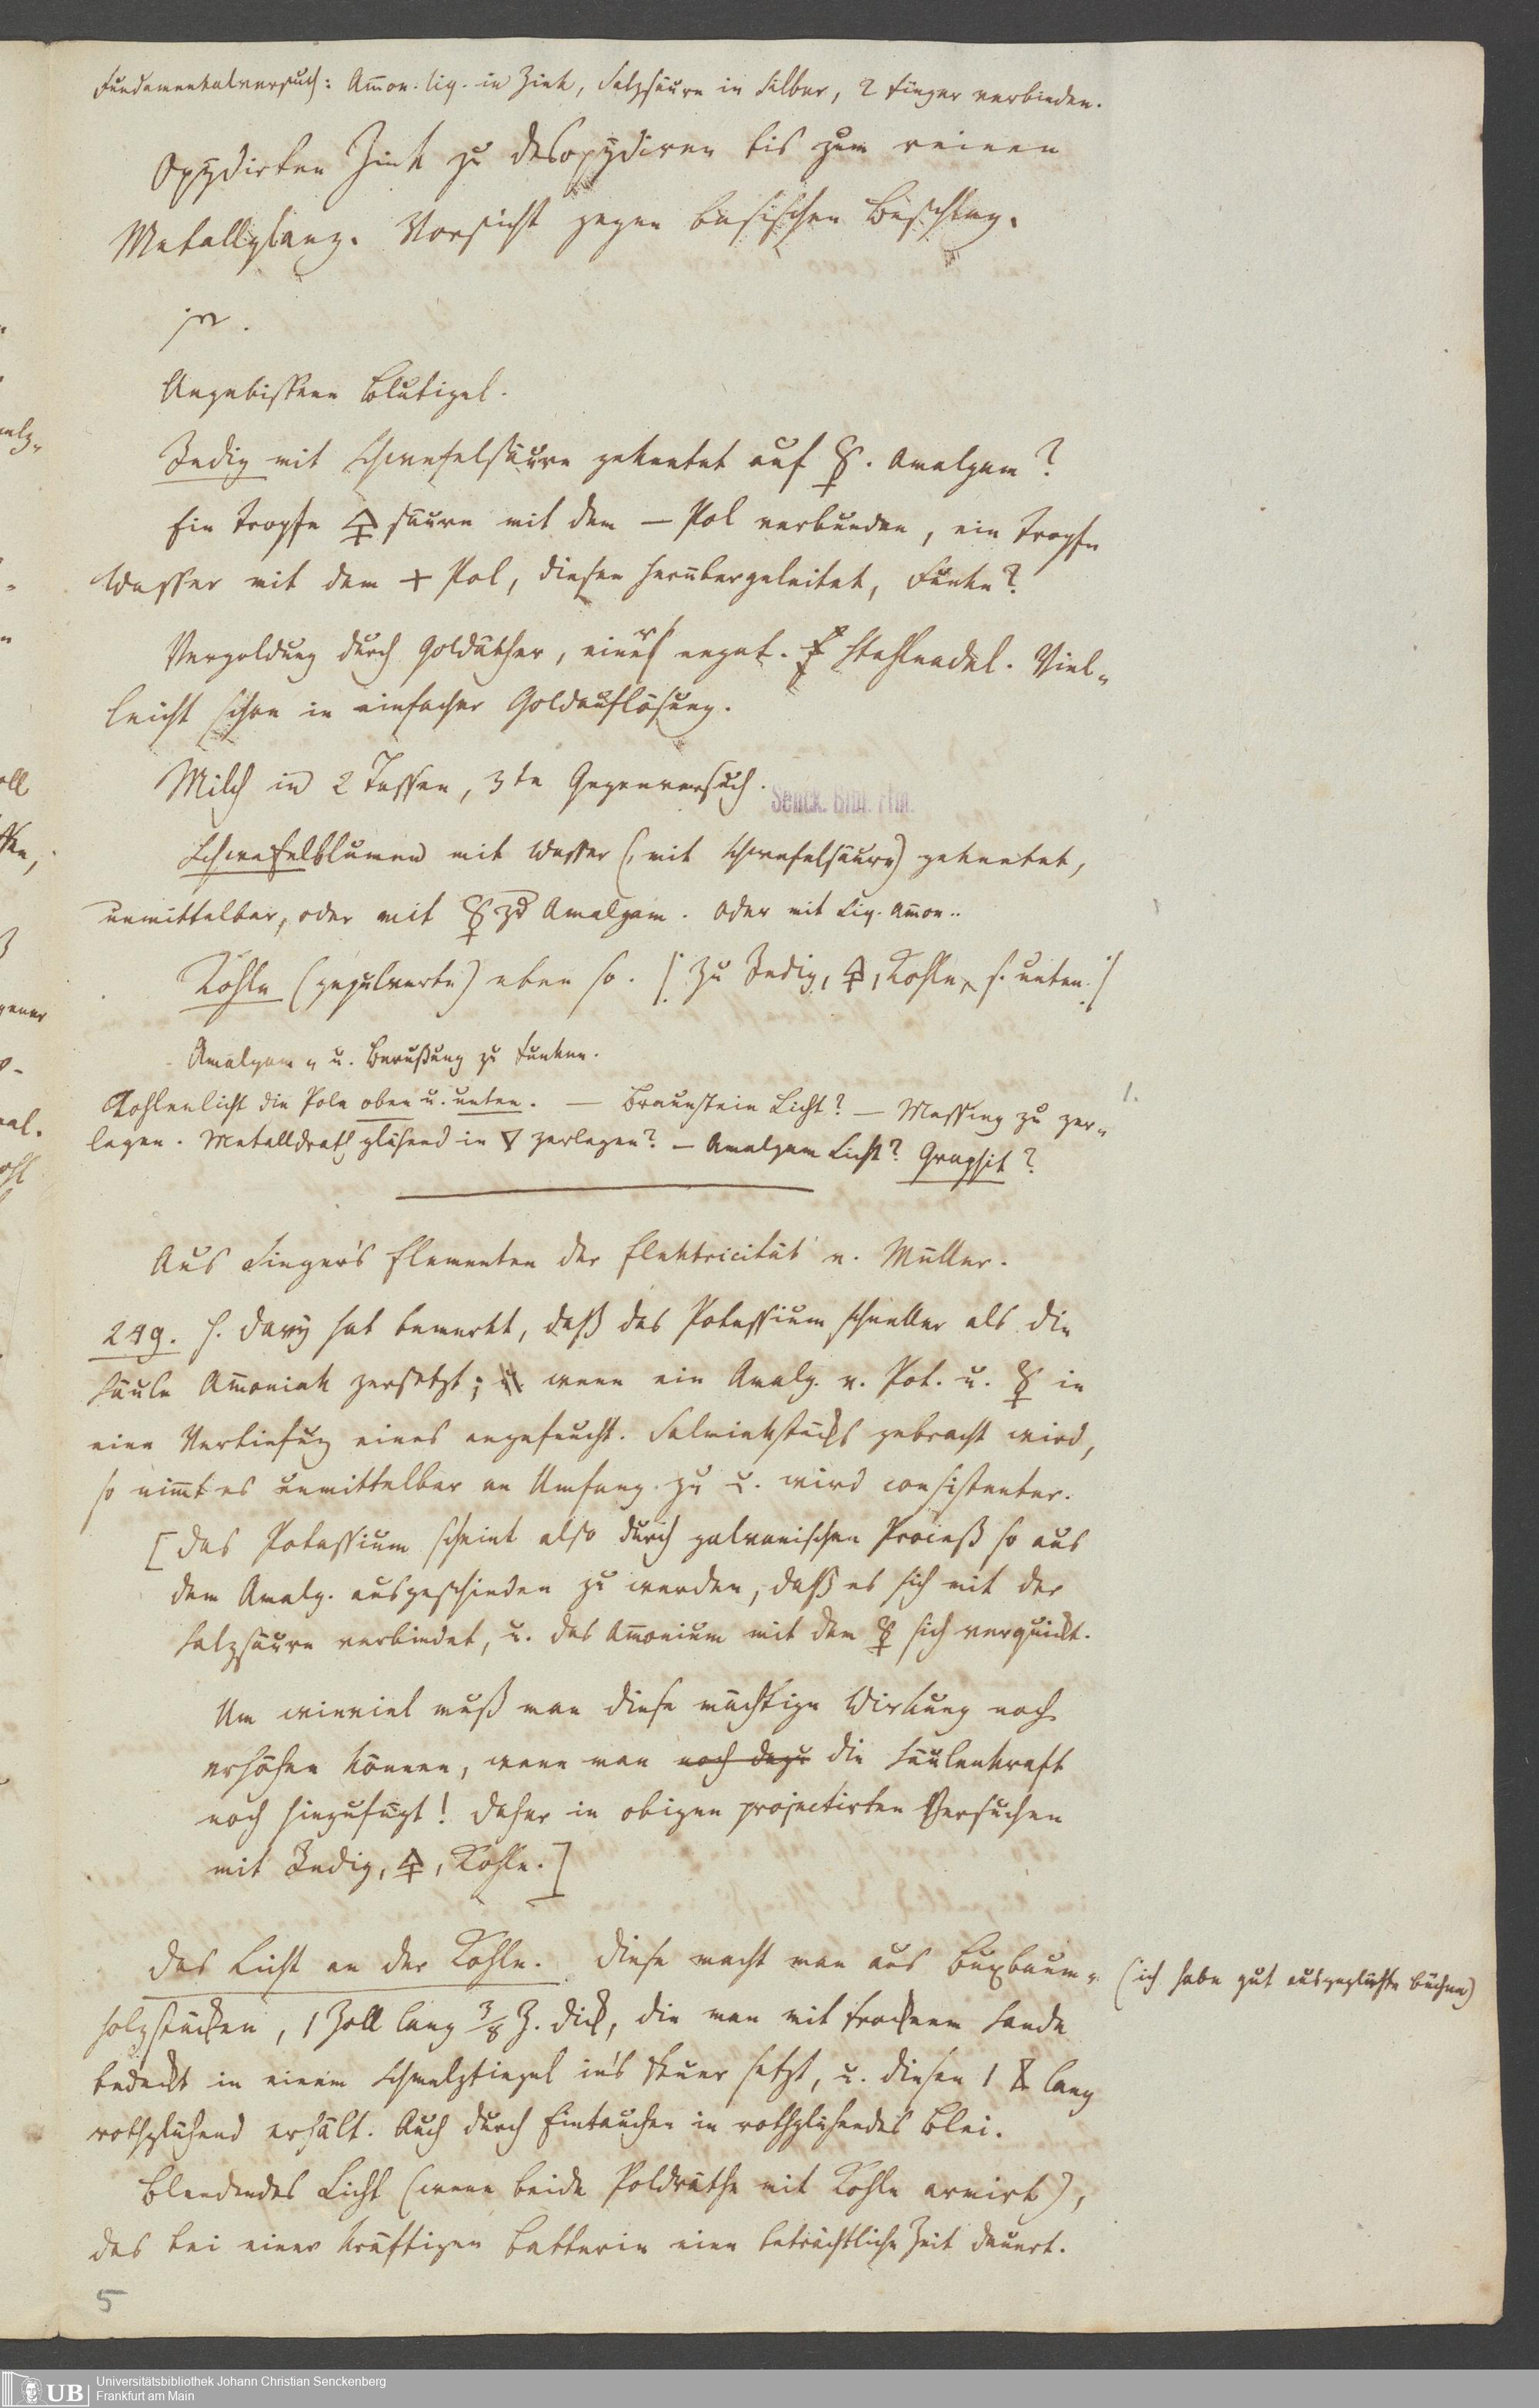 Fundamentalversuch: Am̄on. liq. in Zink, Salzsäure in Silber, 2 Finger verbinden.
Oxydirten Zink zu desoxydiren bis zum reinen
Metallglanz. Vorsicht gegen basischen Beschlag.
Angebissene Blutigel.
Indig mit Schwefelsäure geknetet auf ☿. Amalgam?
Ein Tropfe 🜍 säure mit dem – Pol verbunden, ein Tropfe
Wasser mit dem + Pol, diesen herübergeleitet, Funke?
Vergoldung durch Goldäther, einer negat. Stahlnadel. Viel-
leicht schon in einfacher Goldauflösung.
Milch in 2 Tassen, 3te Gegenversuch.
Senck. Bibl. Ffm.
Schwefelblumen mit Wasser (, mit Schwefelsäure) geknetet,
unmittelbar, oder mit ☿ Amalgam. Oder mit Liq. Am̄on..
Kohle (gepulverte) eben so. /: Zu Indig, 🜍, Kohle, s. unten :/
Amalgam- u. Berußung zu Funken.
Kohlenlicht die Pole oben u. unten. — Braunstein Licht? — Messing zu zer-
legen. Metalldrath glühend in ▽ zerlegen? — Amalgam Licht? Graphit?
1.
Aus Singer's Elementen der Elektricität v. Müller.
249. H. Davy hat bemerkt, daß das Potassium schneller als die
Säule Am̄oniak zersetzt; wenn ein Amalg. v. Pot. u. ☿ in
eine Vertiefung eines angefeucht. Salmiakstücks gebracht wird,
so nim̄t es unmittelbar an Umfang zu u. wird consistenter.
[Das Potassium scheint also durch galvanischen Proceß so aus
dem Amalg. ausgeschieden zu werden, daß es sich mit der
Salzsäure verbindet, u. das Am̄onium mit dem ☿ sich verquickt.
Um wieviel muß man diese mächtige Wirkung noch
erhöhen können, wenn man noch dazu die Säulenkraft
noch hinzufügt! Daher in obigen projectirten Versuchen
mit Indig, 🜍, Kohle.]
Das Licht an der Kohle. Diese macht man aus Buxbaum-
(ich habe gut ausgeglühte büchne)
holzstücken, 1 Zoll lang 3/8 Z. dick, die man mit trocknem Sande
bedeckt in einem Schmelztiegel in's Feuer setzt, u. diesen 1 ⧖ lang
rothglühend erhält. Auch durch Eintauchen in rothglühendes Blei.
Blendendes Licht (wenn beide Poldräthe mit Kohle armirt),
das bei einer kräftigen Batterie eine beträchtliche Zeit dauert.
5
UB
Universitätsbibliothek Johann Christian Senckenberg
Frankfurt am Main